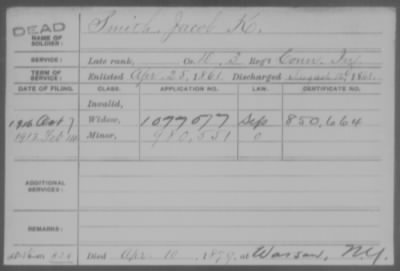 DEAD
NAME OF SOLDIER: Smith, Jacob K.
SERVICE: Late rank, Co. K, 2 Reg't Conn. Inf.
TERM OF SERVICE: Enlisted Apr. 23, 1861 Discharged 1861
DATE OF FILING. CLASS. APPLICATION NO. LAW. CERTIFICATE NO.
Invalid,
1916 Oct 7 Widow, 1077077 850.664
1912 Feb Minor, 980.551 0
ADDITIONAL SERVICES:
REMARKS:
Died Apr. 10, 1879, at Warsaw, N.Y.